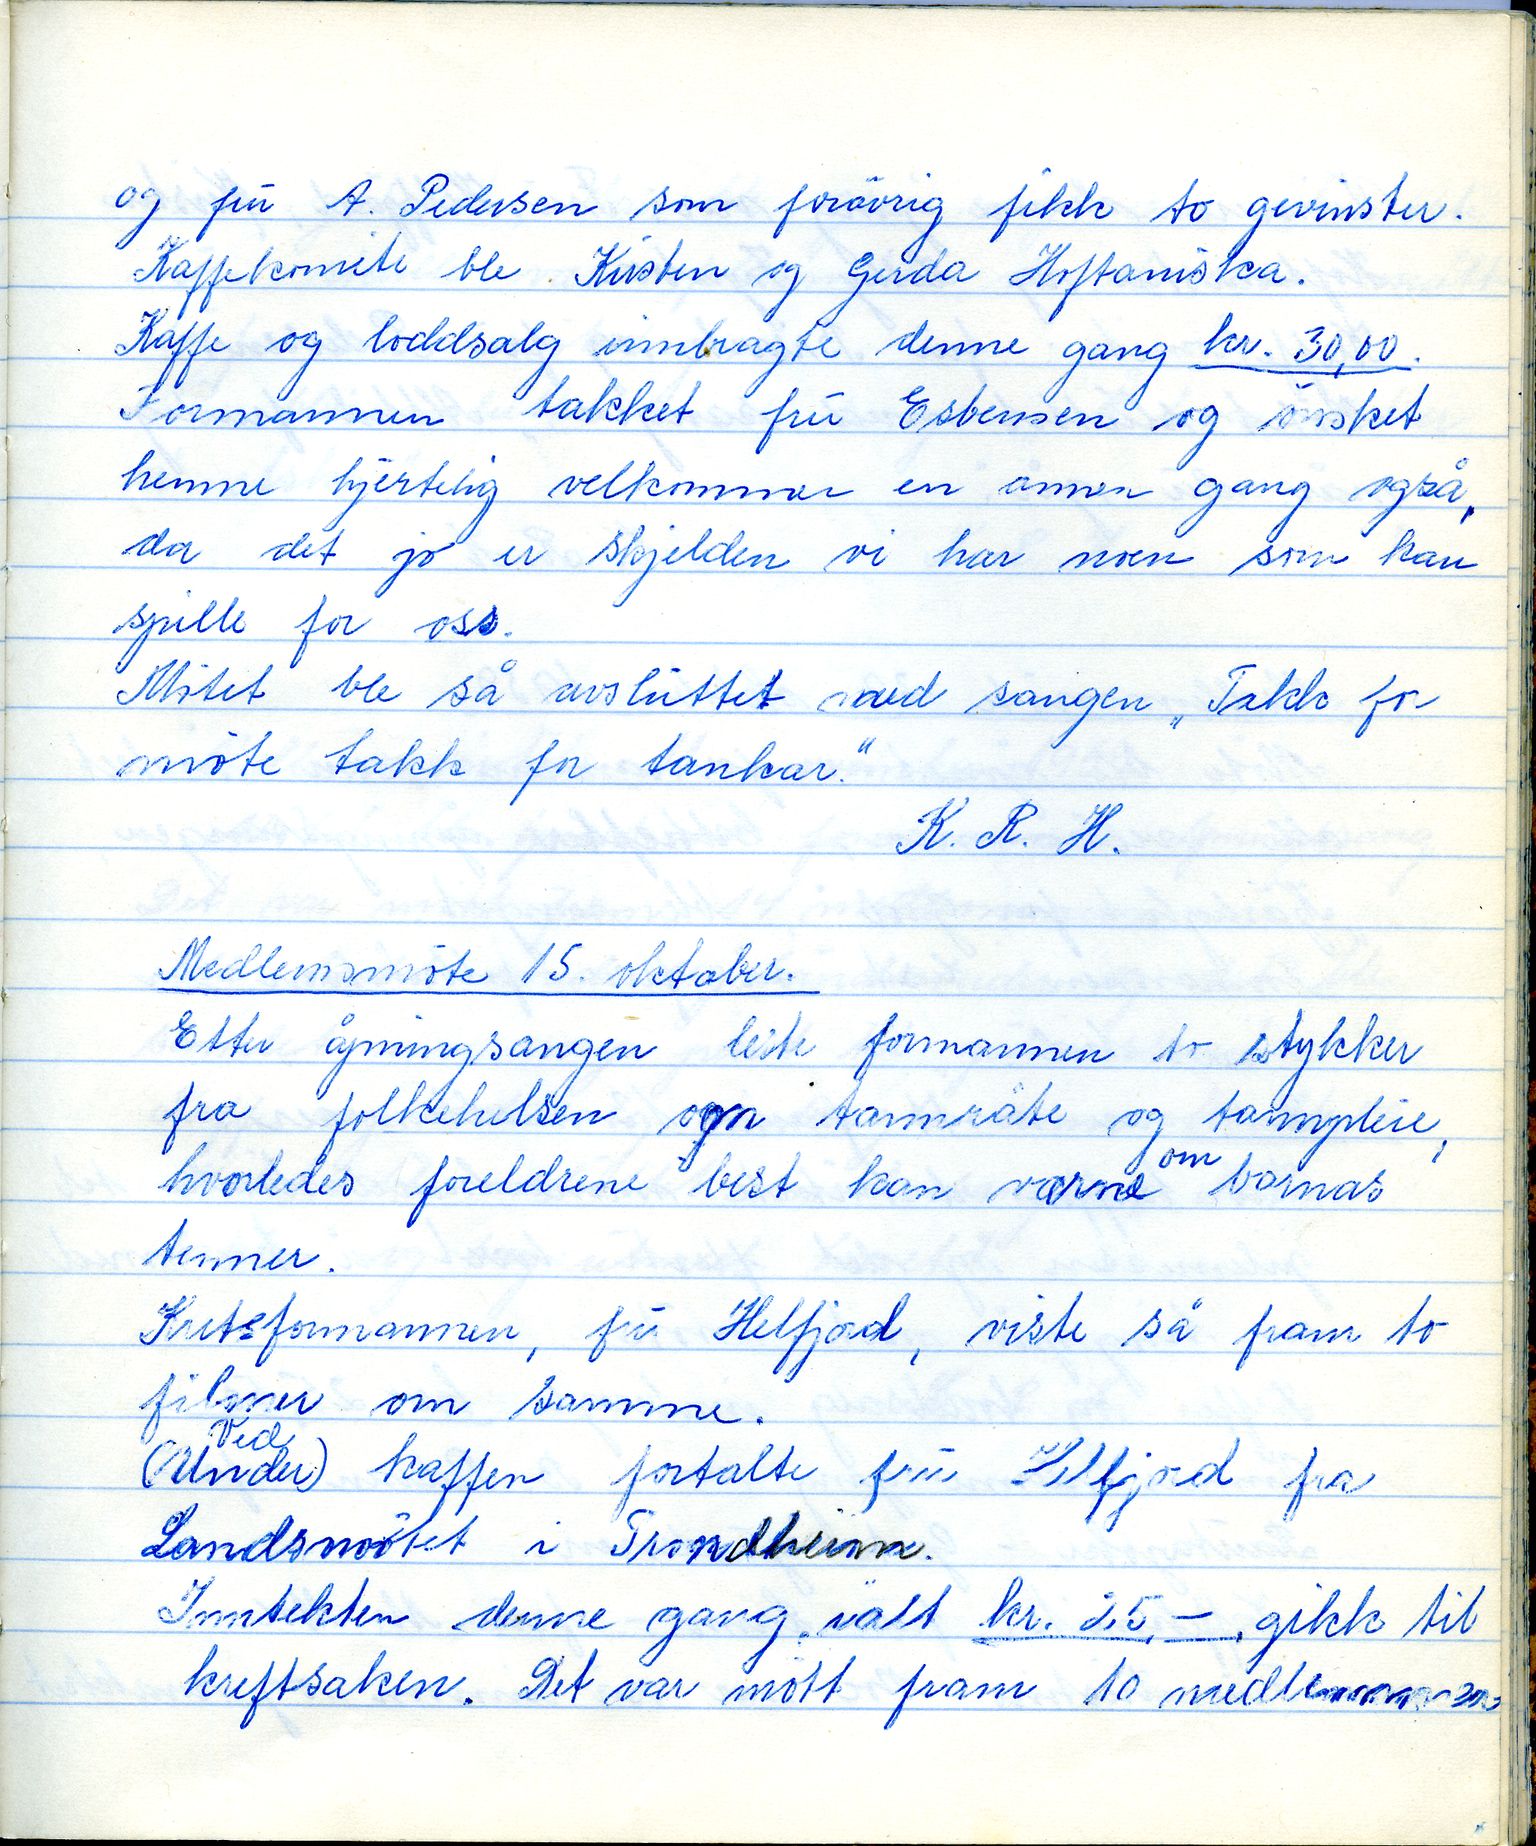 og frū A. Pedersen som forövrig fikk to gevinster.
Kaffekomite ble Kirsten og Gerda Hoftaniska.
Kaffe og loddsalg innbragte denne gang kr. 30,00.
Formannen takket frū Esbensen og önsket
henne hjertelig velkommen en annen gang også,
da det jo er skjelden vi har noen som kan
spille for oss.
Mötet ble så avslūttet med sangen „Takk for
möte takk for tankar."
K. R. H.
Medlemsmöte 15. oktober.
Etter åpningsangen leste formannen to stykker
fra folkehelsen om tannråte og tannpleie,
hvorledes foreldrene best kan værne om barnas
tenner.
Kretsformannen, frū Helfjord, viste så fram to
filmer om samme.
(Under) Ved kaffen fortalte frū Helfjord fra
Landsmötet i Trondheim.
Inntekten denne gang, ialt kr. 25,—, gikk til
kreftsaken. Det var mött fram 10 medlemmer